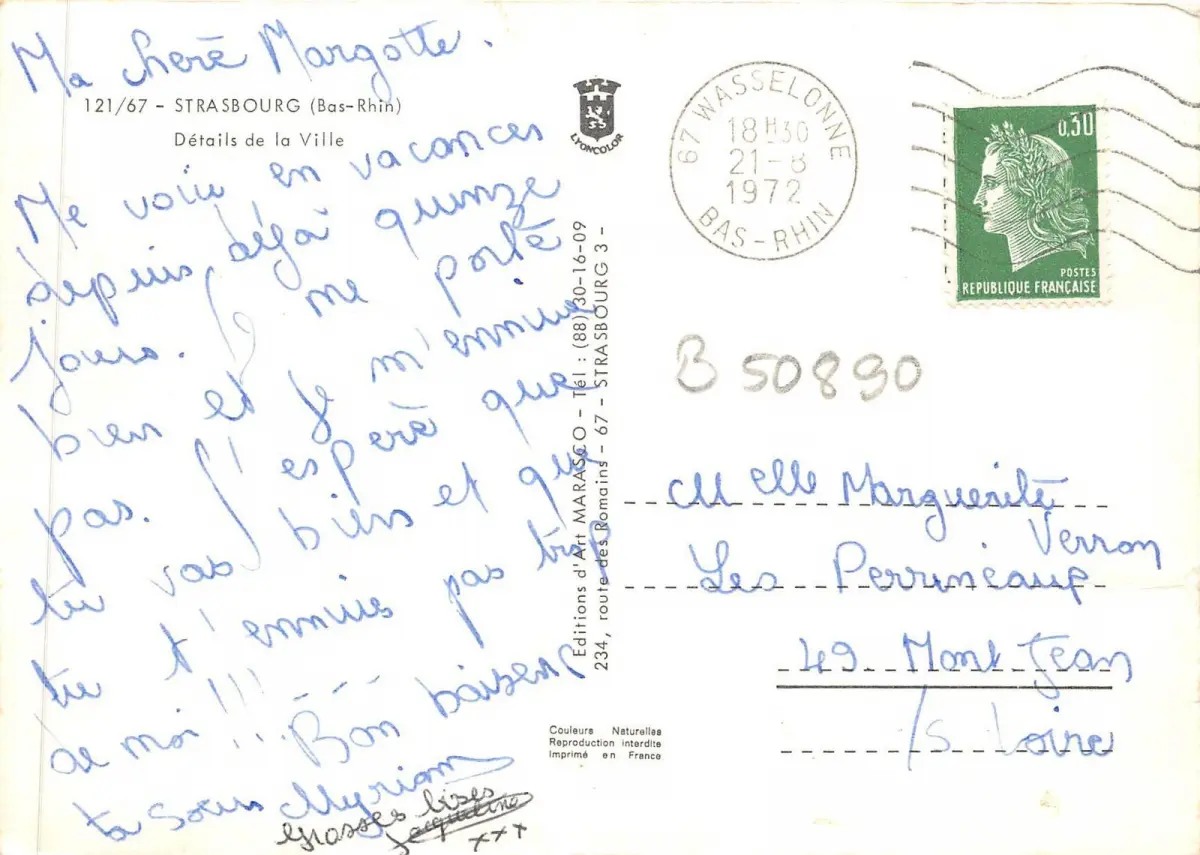 Ma cherè Margotte.
121/67 - STRASBOURG (Bas-Rhin)
Détails de la Ville
Me voici en vacances
depuis déjà quinze
jours. Je me porte
bien et je m'ennuie
pas. J'esperè que
tu vas bien et que
tu t'ennuis pas trop
de moi !!! ---
Bon baisers
ta sœur Myriam
Grosses bises
Jacqueline
xxx
LYONCOLOR
Editions d'Art MARASCO - Tél : (88) 30-16-09
234, route des Romains - 67 - STRASBOURG 3 -
Couleurs Naturelles
Reproduction interdite
Imprimé en France
67 WASSELONNE
18H30
21-8
1972
BAS-RHIN
0,30
POSTES
REPUBLIQUE FRANÇAISE
B 50890
Melle Marguerite
Verron
Les Perrineaux
49 Mont Jean
/s Loire